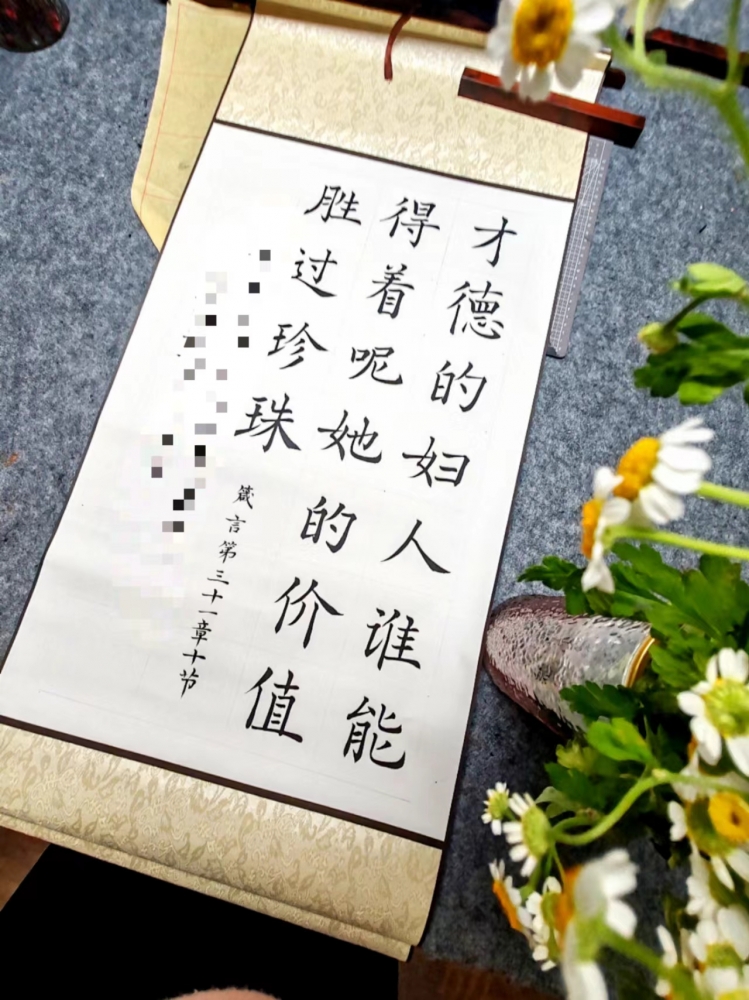 才德的妇人谁能
得着呢她的价值
胜过珍珠
箴言第三十一章十节